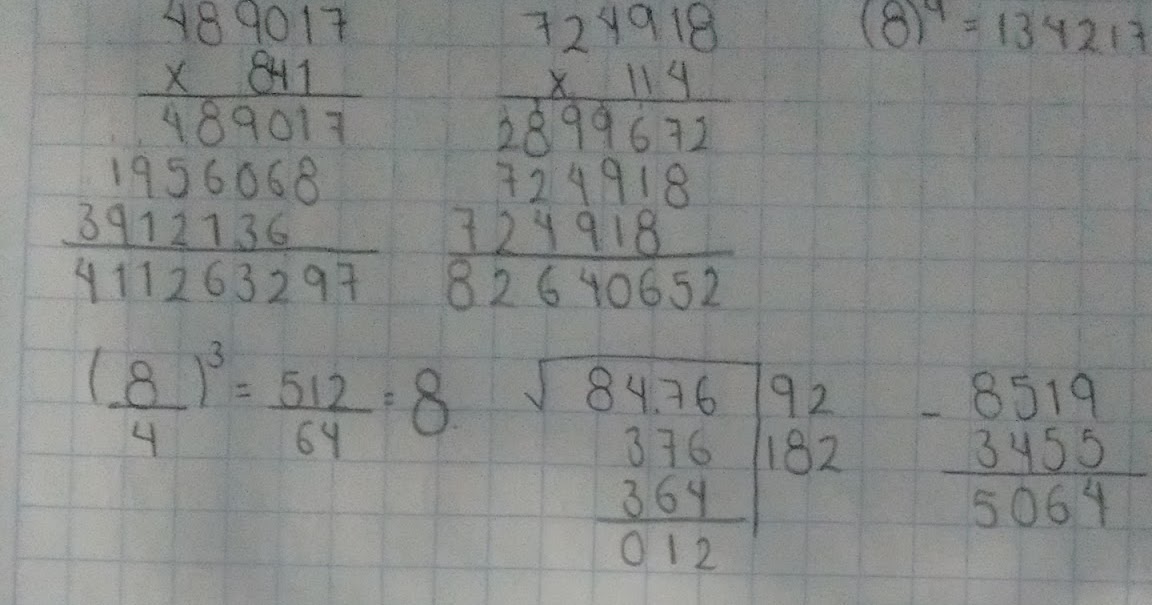 489017
x 841
489017
1956068
3912136
411263297
724918
x 114
2899672
724918
724918
82640652
(8)�9 = 134217
(8/4)³ = 512/64 = 8
√84.76 | 92
376 | 182
364
012
- 8519
3455
5064